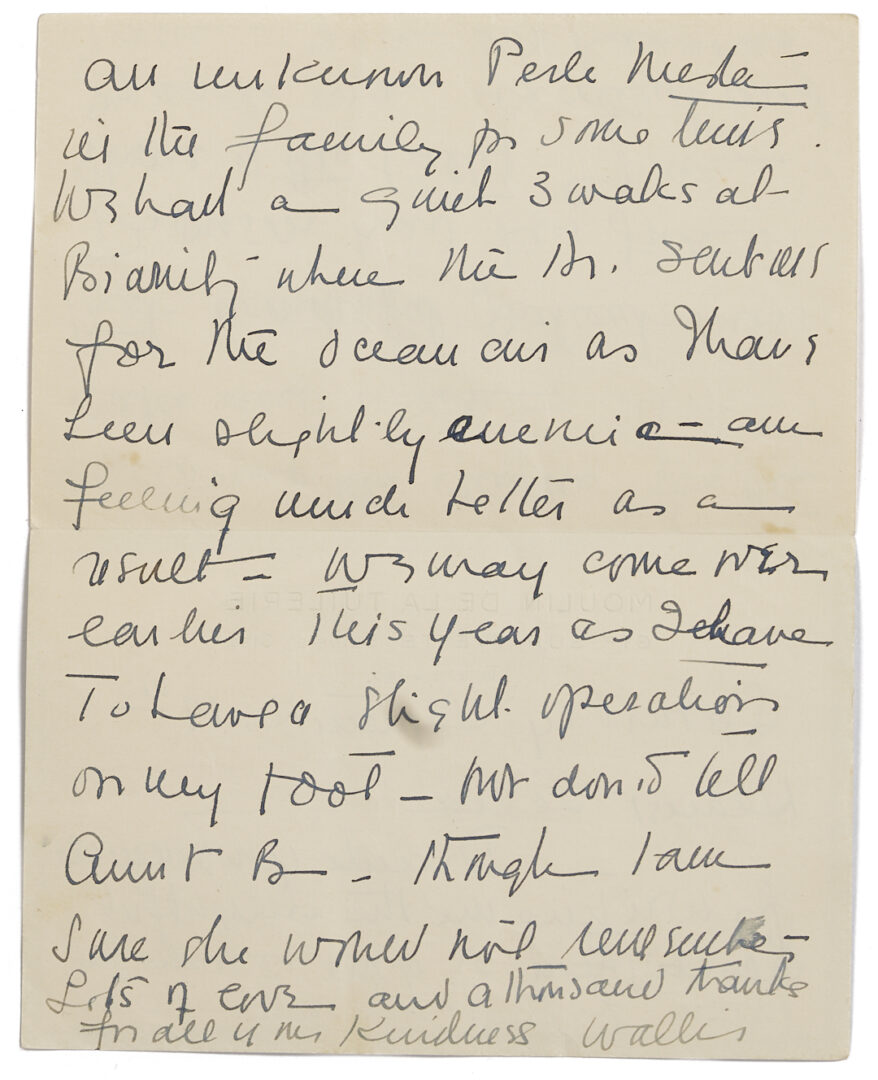 an unknown Perle Mesta —
in the family for some time.
We had a quiet 3 weeks at
Biarritz where the Dr. sent us
for the ocean air as I have
been slightly anemic — am
feeling much better as a
result — We may come over
earlier this year as I have
to have a slight operation
on my foot — but don't tell
Aunt B — though I am
Sure she would not remember —
Lots of love and a thousand thanks
for all your kindness Wallis
MOULIN DE LA TUILERIE